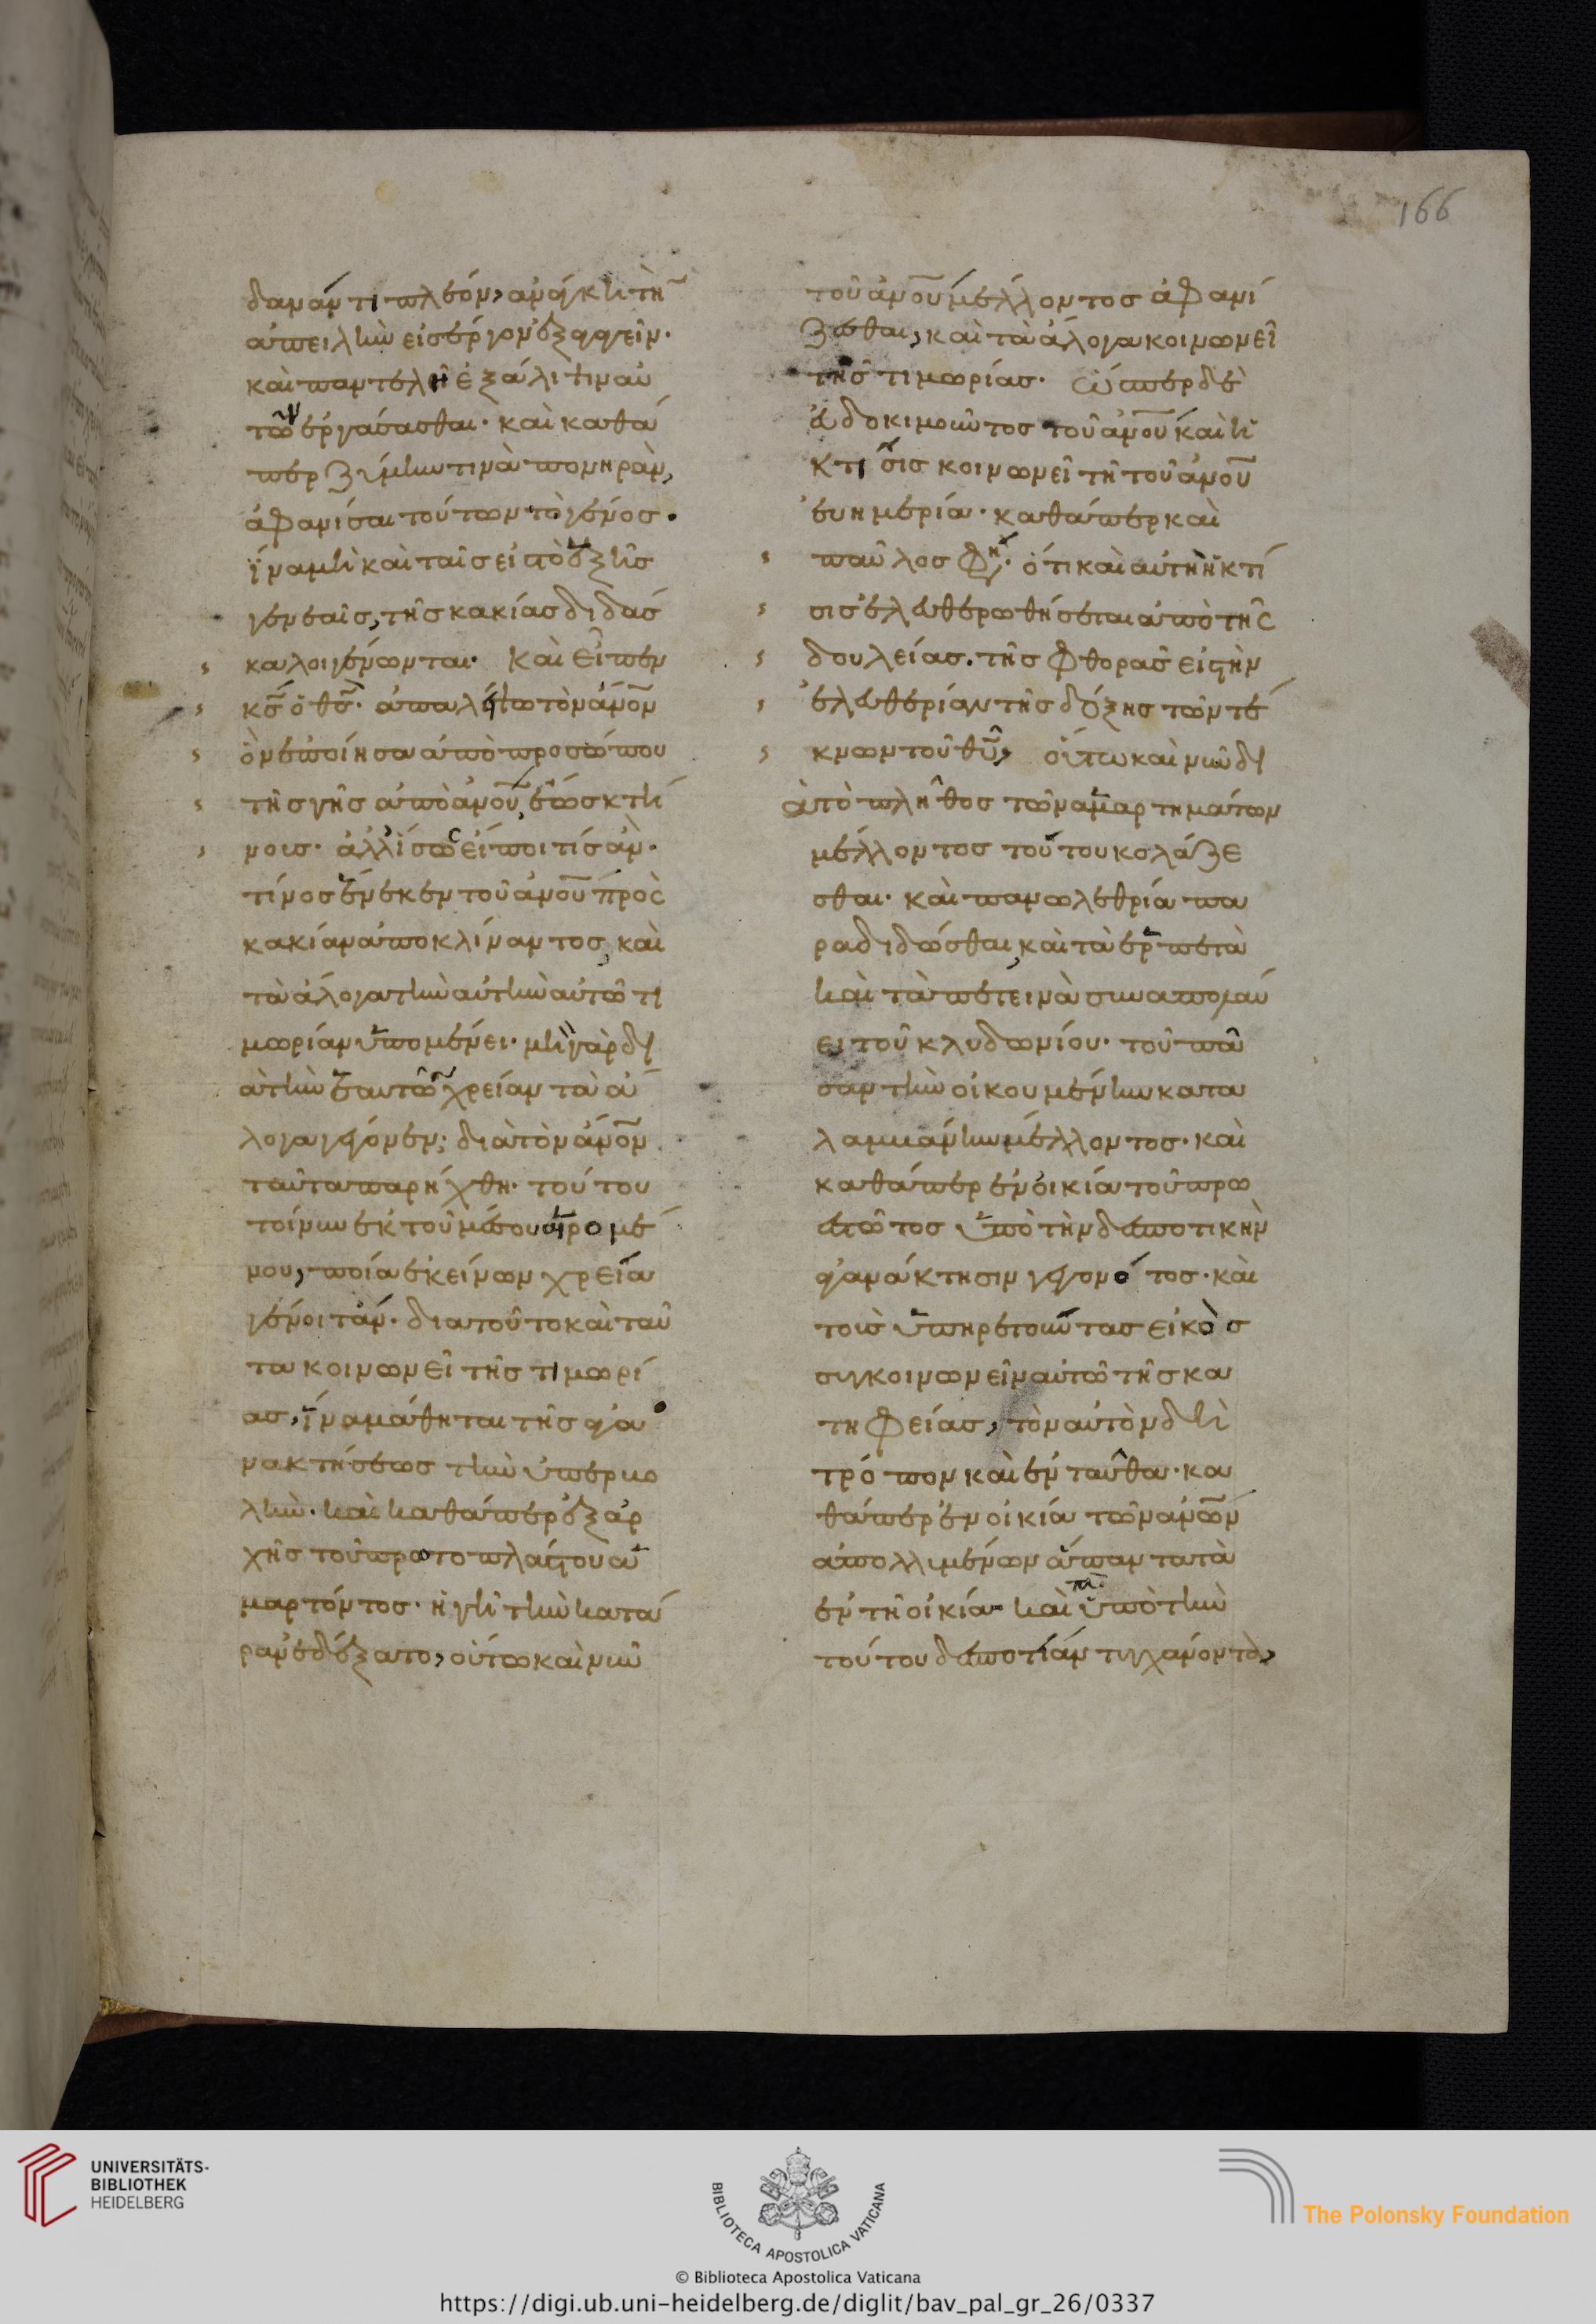 166
δαναν τι πλέον, ἀνάγκη τὴν
ἀπειλὴν εἰς ἔργον ἐξαγαγεῖν·
καὶ παντελῆ ἐξάλιψιν αὐ
τῶν ἐργάσασθαι· καὶ καθά
περ ζύμην τινὰ πονηρὰν,
ἀφανίσαι τούτων τὸ γένος·
ἵνα μὴ καὶ ταῖς εἰς τὸ ἑξῆς
γενεαῖς, τῆς κακίας διδάσ
καλοι γένωνται· Καὶ εἶπεν
κς̄ ὁ θς̄· ἀπαλείψω τὸν ἄνο̄ν
ὃν ἐποίησα ἀπὸ προσώπου
τῆς γῆς ἀπὸ ἀνο̄υ, ἕως κτή
νους· ἀλλ' ἴσως εἴποι τίς ἀν·
τίνος ἕνεκεν τοῦ ἀνο̄υ πρὸς
κακίαν ἀποκλίναντος, καὶ
τὰ ἄλογα τὴν αὐτὴν αὐτῶ τι
μωρίαν ὑπομένει· μὴ γὰρ δι
ὰ τὴν ἑαυτῶν χρείαν τὰ ἄ
λογα γέγονεν; διὰ τὸν ἄνο̄ν
ταῦτα παρήχθη· τούτου
τοίνυν ἐκ τοῦ μέσου αἱρομέ
νου, ποία ἐκείνων χρεία
γένοιτ' ἄν· διὰ τοῦτο καὶ ταῦ
τα κοινωνεῖ τῆς τιμωρί
ας, ἵνα μάθηται τῆς ἀγα
νακτήσεως τὴν ὑπερβο
λὴν· καὶ καθάπερ ἐξ ἀρ
χῆς τοῦ πρωτοπλάστου ἁ
μαρτόντος· ἡ γῆ τὴν κατά
ραν ἐδέξατο, οὕτω καὶ νῦν
τοῦ ἀνο̄υ μέλλοντος ἀφανί
ζεσθαι, καὶ τὰ ἄλογα κοινωνεῖ
τῆς τιμωρίας· ὥσπερ δὲ
εὐδοκιμοῦντος τοῦ ἀνο̄υ καὶ ἡ
κτίσις κοινωνεῖ τῇ τοῦ ἀνο̄υ
εὐημερία· καθάπερ καὶ
παῦλος φη· ὅτι καὶ αὐτὴ ἡ κτί
σις ἐλευθερωθήσεται ἀπὸ τῆς
δουλείας τῆς φθορᾶς εἰς τὴν
ἐλευθερίαν τῆς δόξης τῶν τέ
κνων τοῦ θῡ, οὕτω καὶ νῦν δι
ὰ τὸ πλῆθος τῶν ἁμαρτημάτων
μέλλοντος τούτου κολάζε
σθαι· καὶ πανωλεθρία πα
ραδίδωσθαι, καὶ τὰ ἑρπετὰ
καὶ τὰ πετεινὰ συναπολαύ
ει τοῦ κλυδωνίου· τοῦ πᾶ
σαν τὴν οἰκουμένην κατα
λαμβάνειν μέλλοντος· καὶ
καθάπερ ἐν οἰκία τοῦ προε
στῶτος ὑπὸ τὴν δεσποτικὴν
ἀγανάκτησιν γεγονότος· καὶ
τοὺς ὑπηρετοῦντας εἰκὸς
συγκοινωνεῖν αὐτῶ τῆς κα
τηφείας, τὸν αὐτὸν δὴ
τρόπον καὶ ἐνταῦθα· κα
θάπερ ἐν οἰκία τῶν ἀνω̄ν
ἀπολλυμένων ἅπαντα τὰ
ἐν τῇ οἰκία καὶ ὑπὸ τὴν
τούτου δεσποτίαν τυγχάνοντα,
UNIVERSITÄTS-
BIBLIOTHEK
HEIDELBERG
BIBLIOTECA APOSTOLICA VATICANA
The Polonsky Foundation
© Biblioteca Apostolica Vaticana
https://digi.ub.uni-heidelberg.de/diglit/bav_pal_gr_26/0337